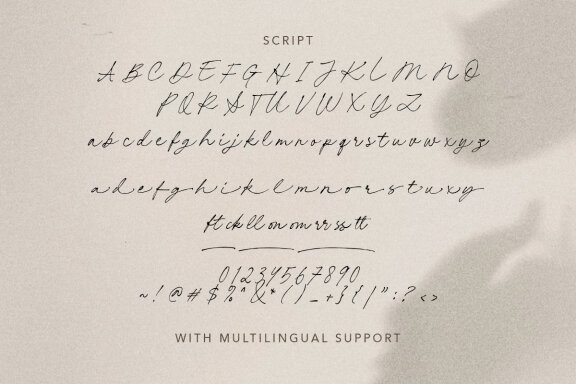 SCRIPT
A B C D E F G H I J K L M N O
P Q R S T U V W X Y Z
a b c d e f g h i j k l m n o p q r s t u v w x y z
a d e f g h i k l m n o r s t u x y
ft ck ll on om rr ss tt
0 1 2 3 4 5 6 7 8 9 0
~ ! @ # $ % ^ & * ( ) _ + } { | " : ? < >
WITH MULTILINGUAL SUPPORT